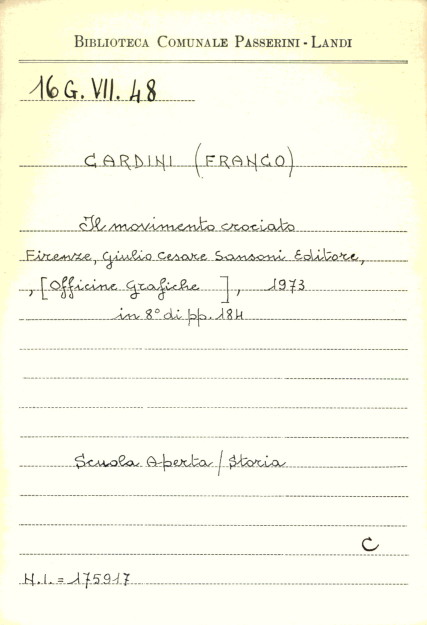 BIBLIOTECA COMUNALE PASSERINI - LANDI
16 G. VII. 48
CARDINI (FRANCO)
Il movimento crociato
Firenze, Giulio Cesare Sansoni Editore,
, [Officine Grafiche ], 1973
in 8° di pp. 184
Scuola Aperta / Storia
C
N.I. = 175917